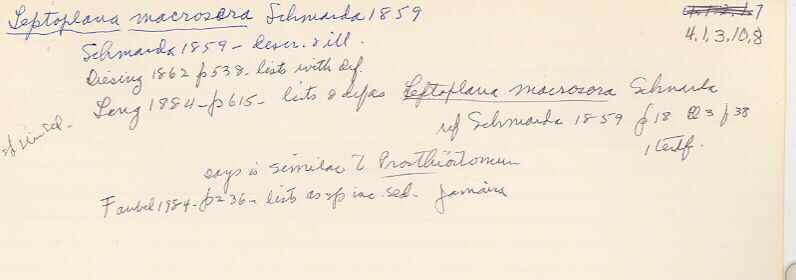 Leptoplana macrosora Schmarda 1859
4.1.3.10.8
Schmarda 1859 - descr. & ill.
Diesing 1862 p538 - lists with def.
Lang 1884 - p615 - lists & defs as Leptoplana macrosora Schmarda
ref Schmarda 1859 p 18 Pl 3 f 38
1 text f.
says is similar to Prosthiostomum
Faubel 1984 - p236 - lists as sp inc. sed. Jamaica